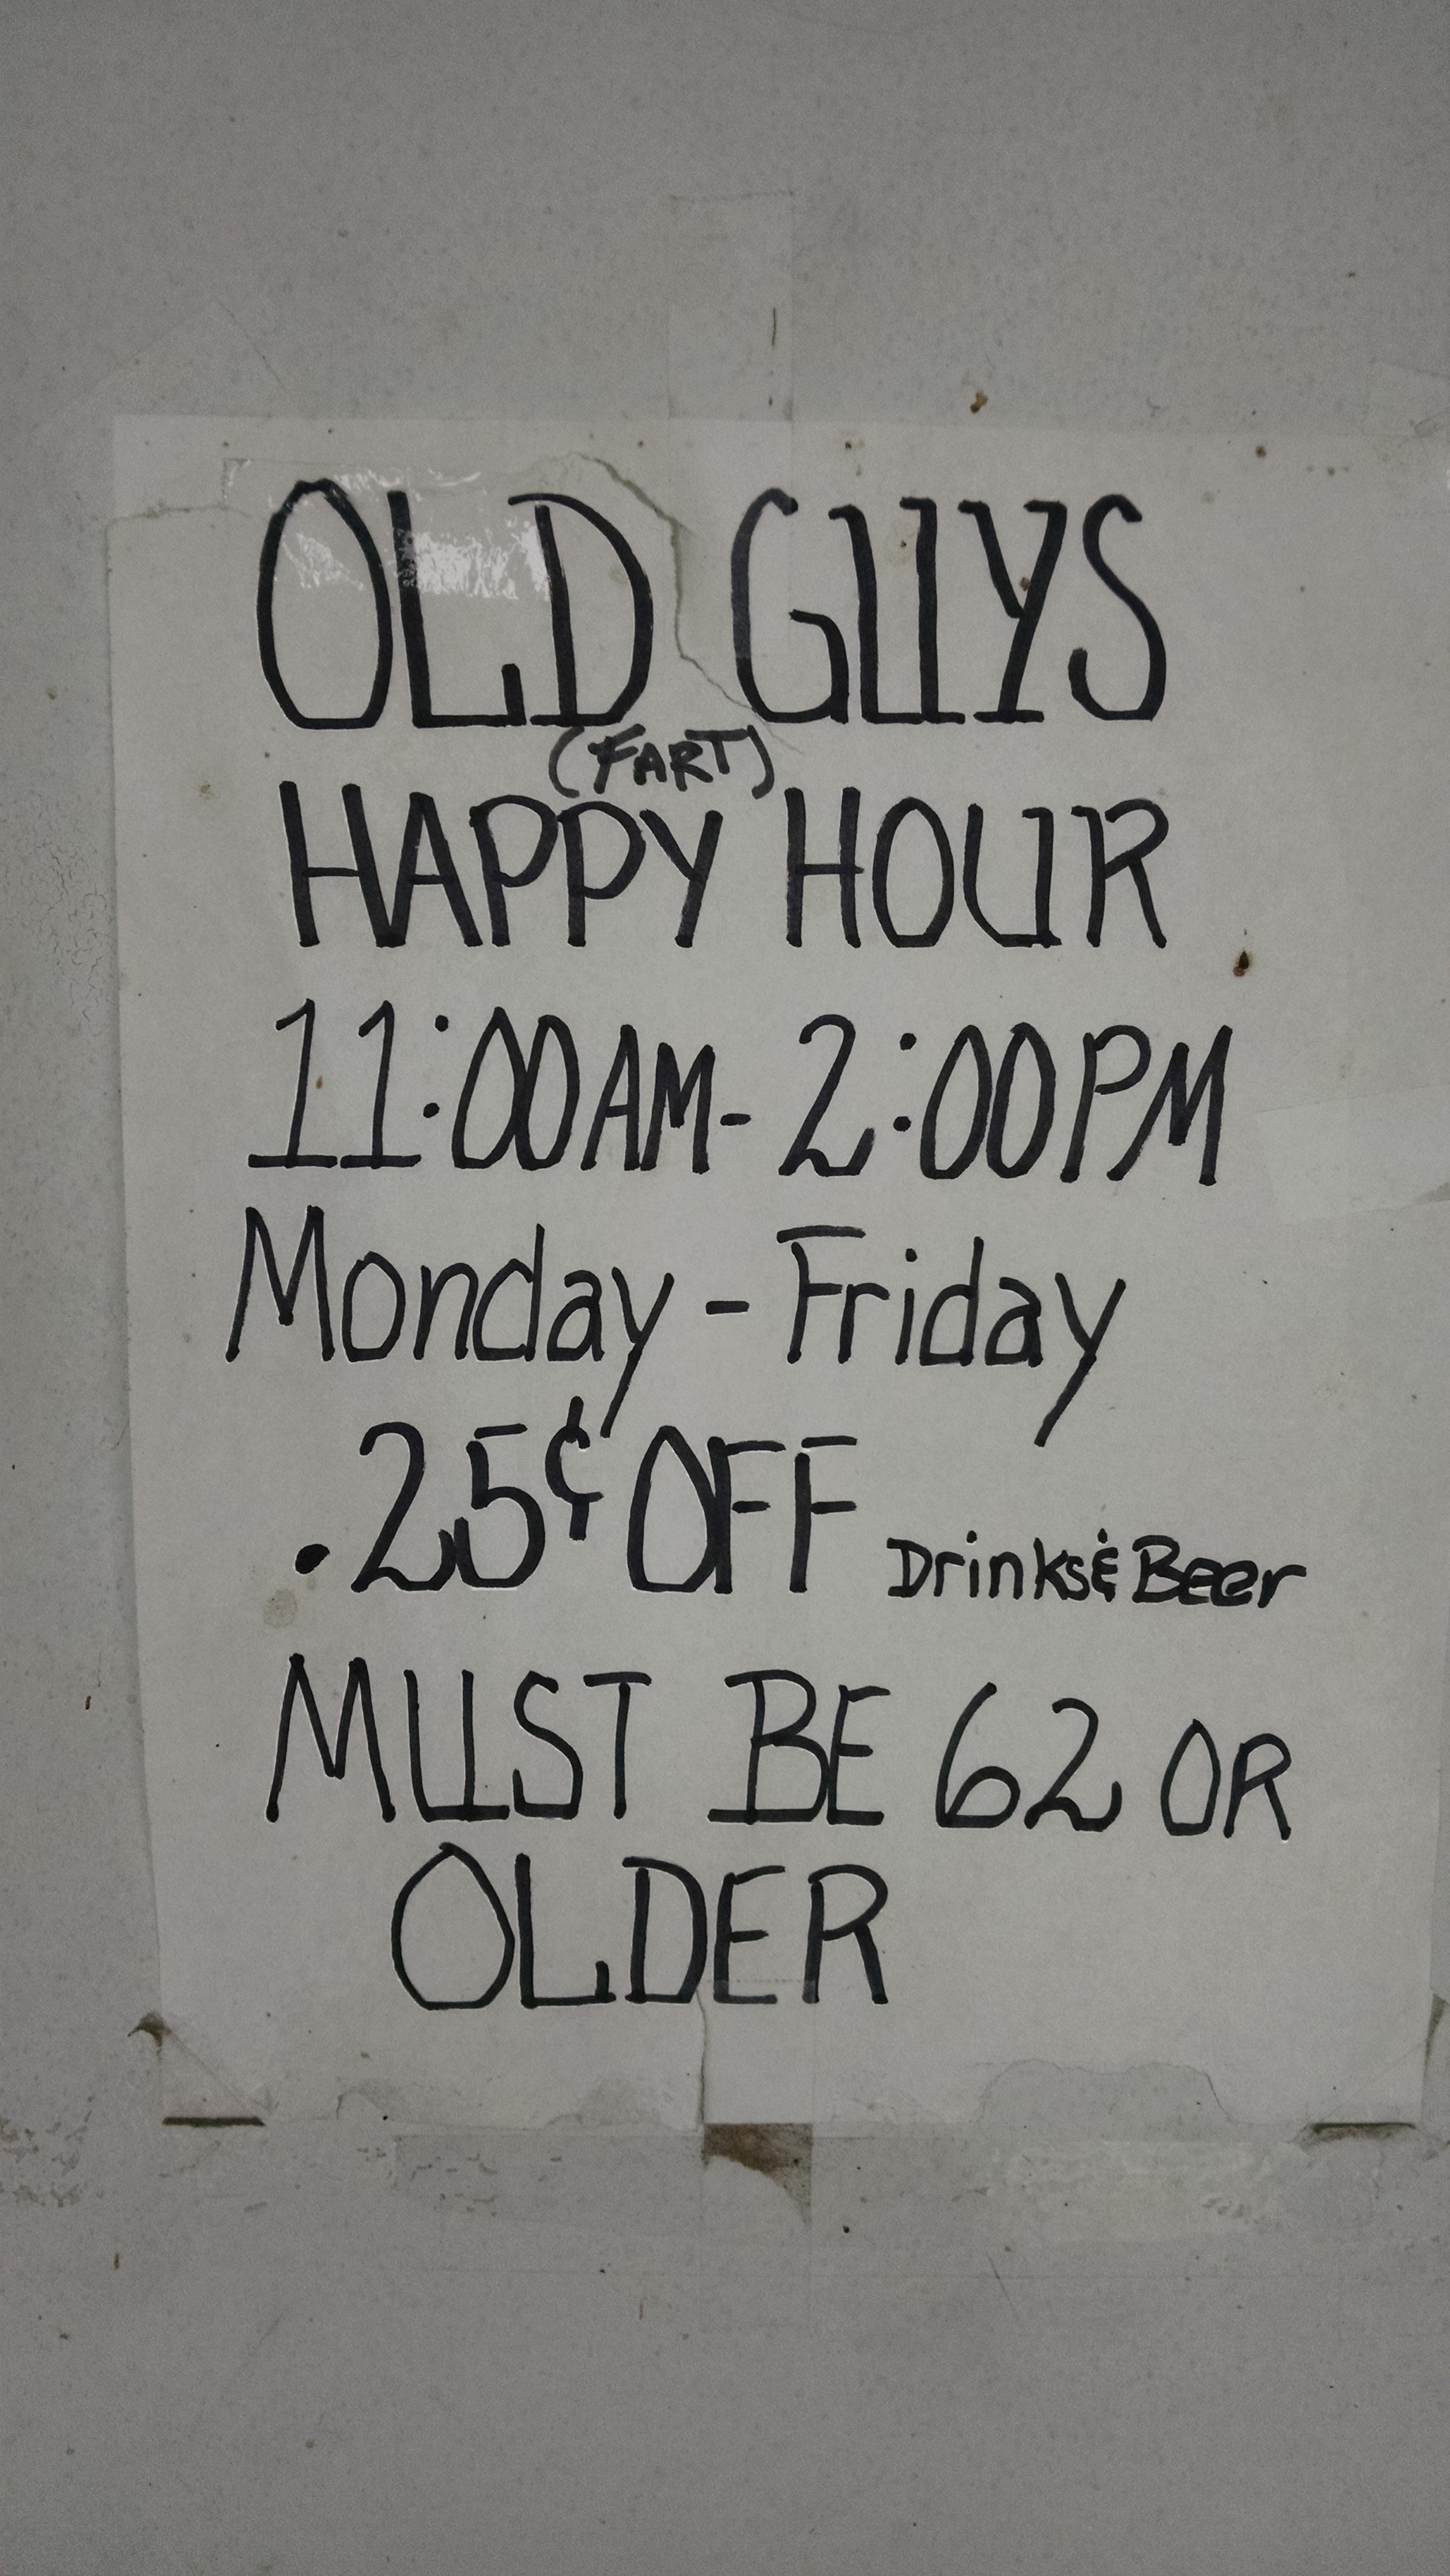 OLD GUYS
(FART)
HAPPY HOUR
11:00AM - 2:00PM
Monday - Friday
.25¢ OFF Drinks & Beer
MUST BE 62 OR
OLDER